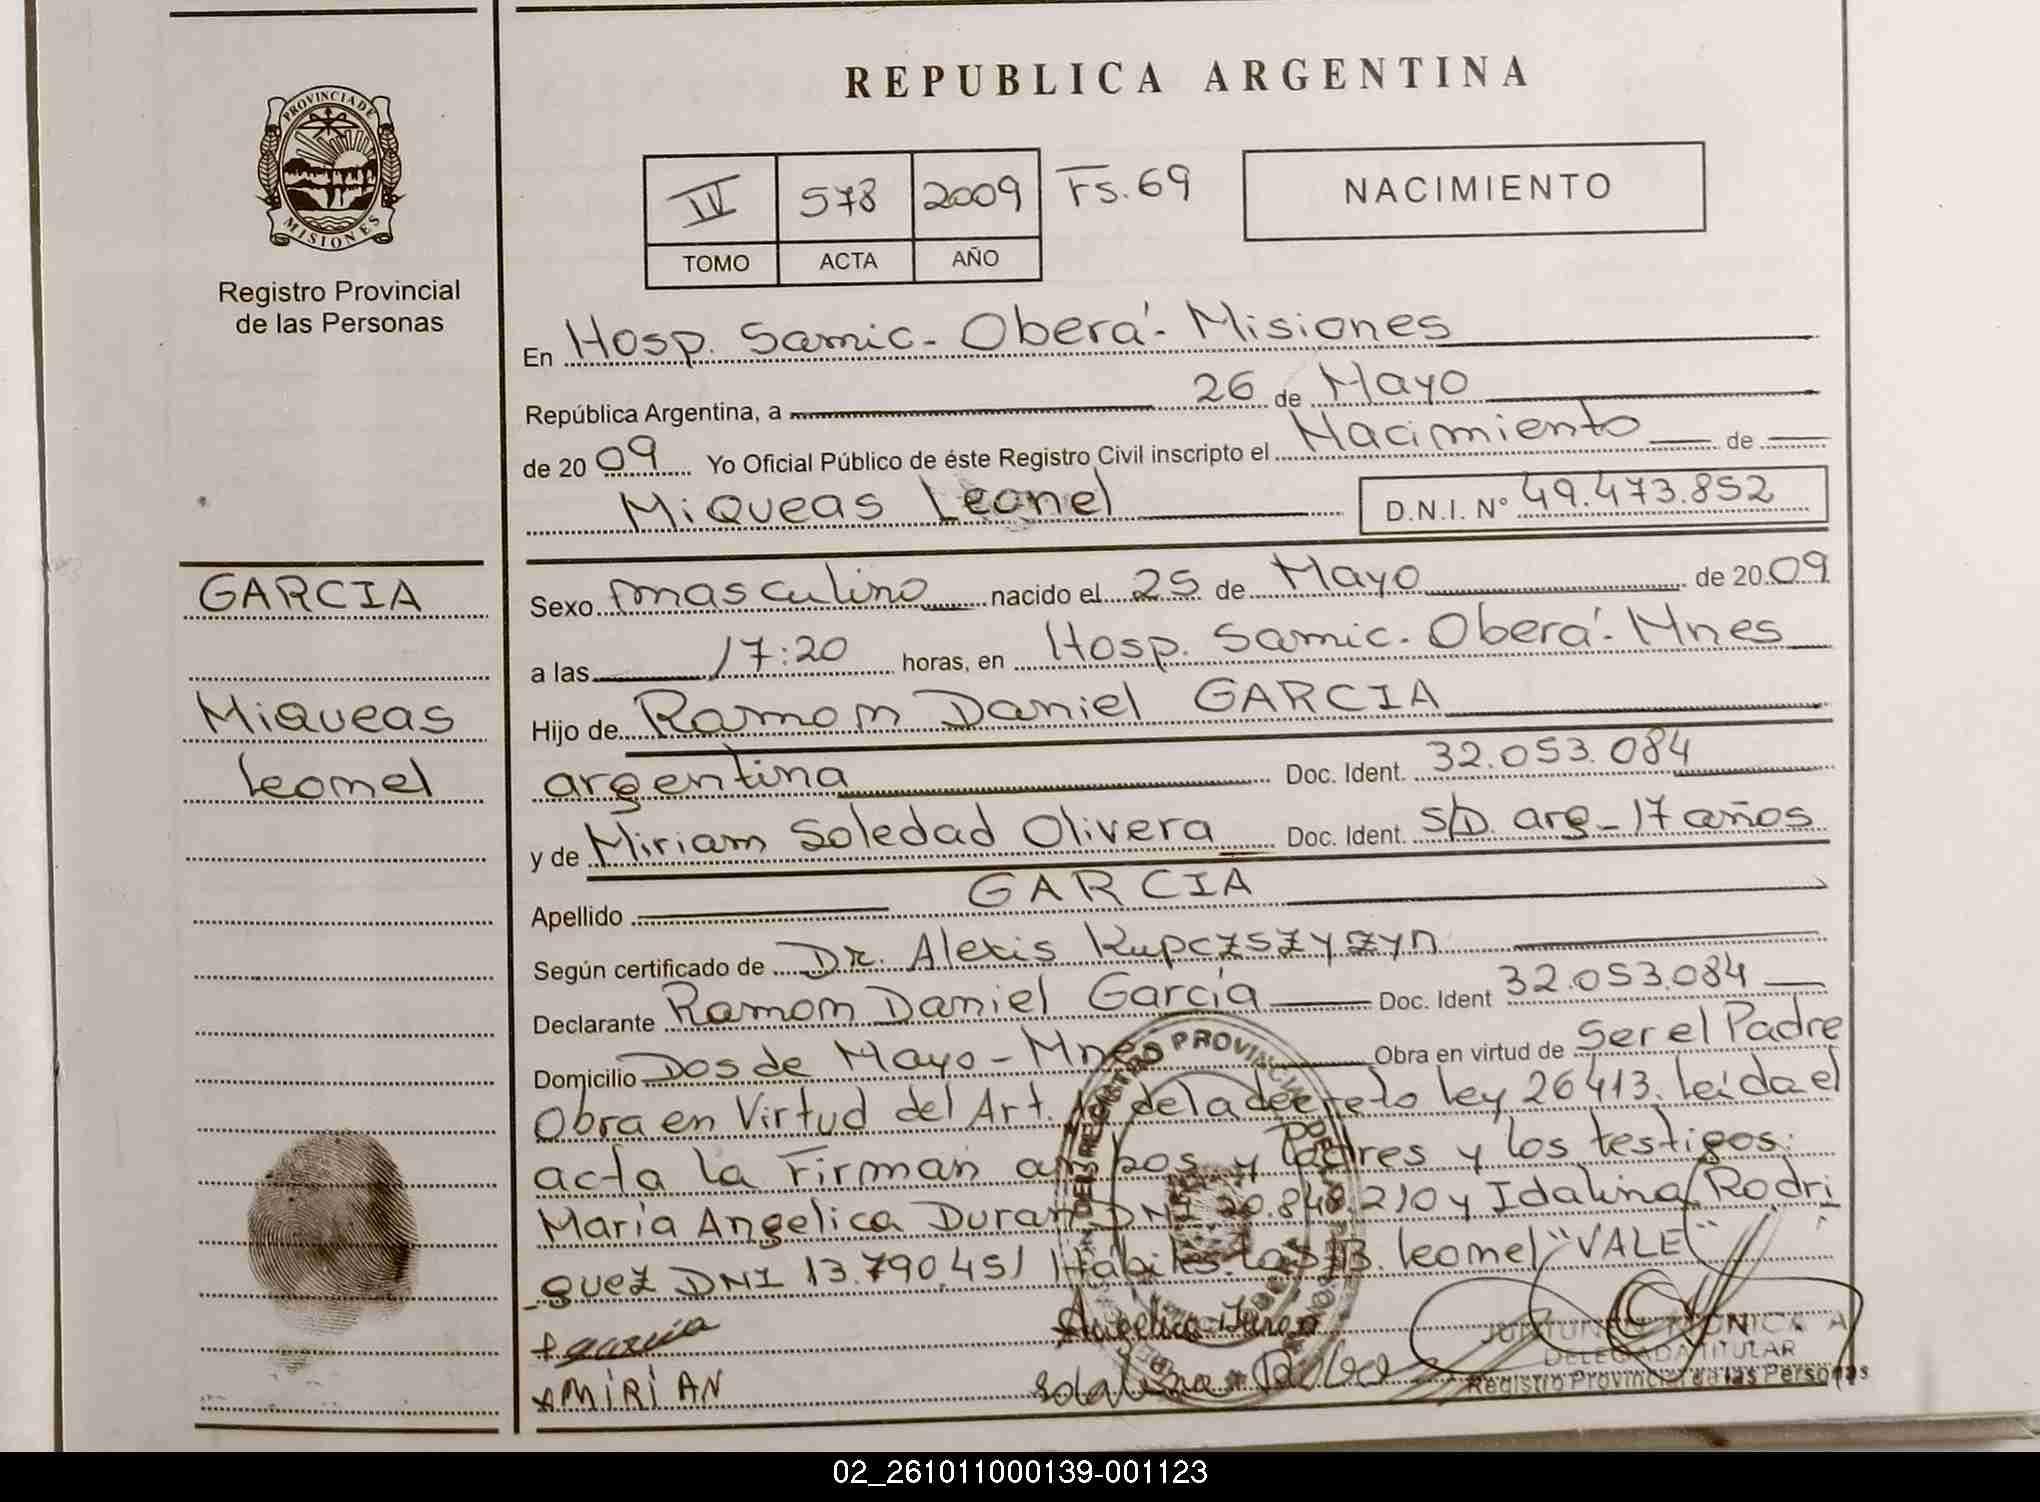 REPUBLICA ARGENTINA
PROVINCIA DE
MISIONES
Registro Provincial
de las Personas
IV 578 2009 Fs. 69
TOMO ACTA AÑO
NACIMIENTO
En Hosp. Samic - Oberá - Misiones
República Argentina, a 26 de Mayo
de 2009 Yo Oficial Público de éste Registro Civil inscripto el Nacimiento de
Miqueas Leonel D.N.I. N° 49.473.852
GARCIA
Miqueas
Leonel
Sexo masculino nacido el 25 de Mayo de 2009
a las 17:20 horas, en Hosp. Samic - Oberá - Mnes
Hijo de Ramon Daniel GARCIA
argentina Doc. Ident. 32.053.084
y de Miriam Soledad Olivera Doc. Ident. S/D. arg - 17 años
Apellido GARCIA
Según certificado de Dr. Alexis Kupczszyzyn
Declarante Ramon Daniel Garcia Doc. Ident 32.053.084
Domicilio Dos de Mayo - Mnes Obra en virtud de Ser el Padre
Obra en Virtud del Art. de la decreto ley 26413. leída el
acta la Firman ambos y Padres y los testigos:
María Angelica Duran DNI 20.848.210 y Idalina Rodri
guez DNI 13.790.451 Hábiles. Leonel "VALE"
garcia
MIRIAN
Angelica Duran
DELEGADA TITULAR
Registro Provincial de las Personas
02_261011000139-001123